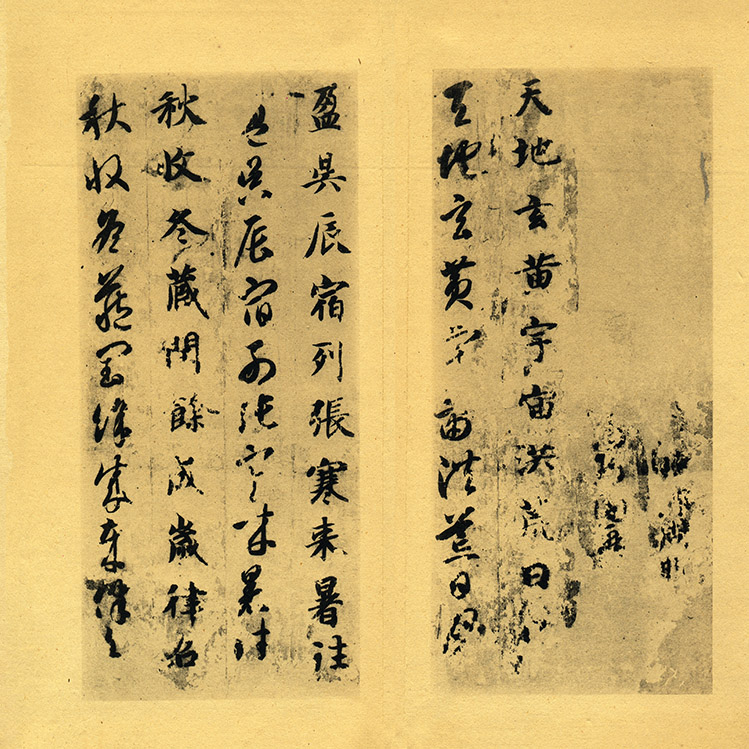 天地玄黄宇宙洪荒日月
天地玄黄宇宙洪荒日月
盈昃辰宿列張寒來暑往
盈昃辰宿列張寒來暑往
秋收冬藏閏餘成歲律召
秋收冬藏閏餘成歲律召